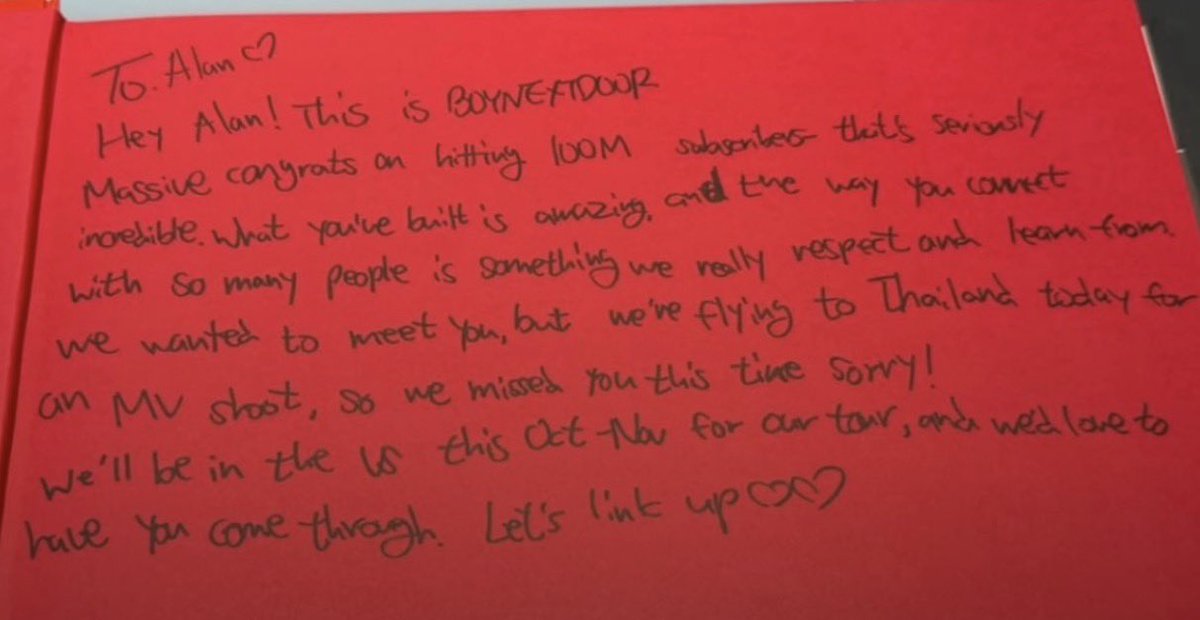 To. Alan♡
Hey Alan! This is BOYNEXTDOOR
Massive congrats on hitting 100M subscribers that's seriously
incredible. What you've built is amazing. and the way you connect
with so many people is something we really respect and learn from.
we wanted to meet you, but we're flying to Thailand today for
an MV shoot, so we missed you this time sorry!
we'll be in the US this Oct-Nov for our tour, and we'd love to
have you come through. Let's link up♡♡